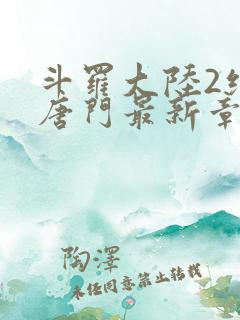 斗羅大陸2
唐門最新章
陶澤
未经同意禁止转载